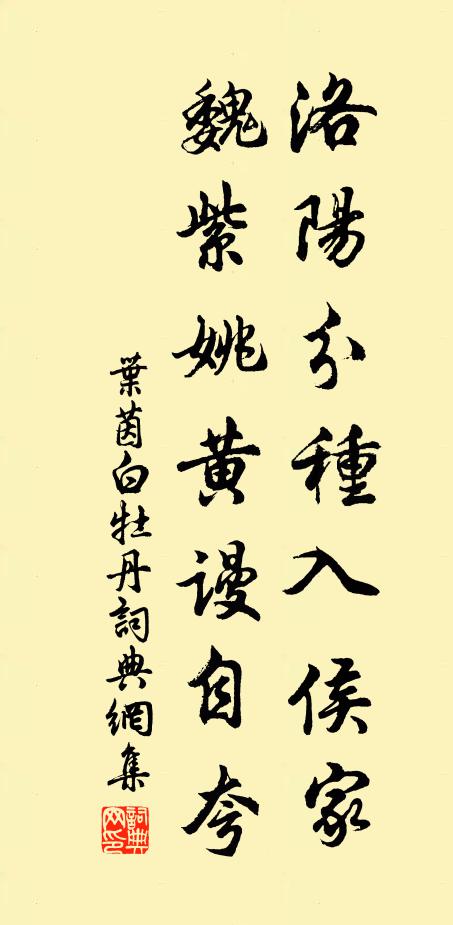 洛陽分種入侯家
魏紫姚黃謾自夸
葉茵白牡丹詞典網集
詞典网印